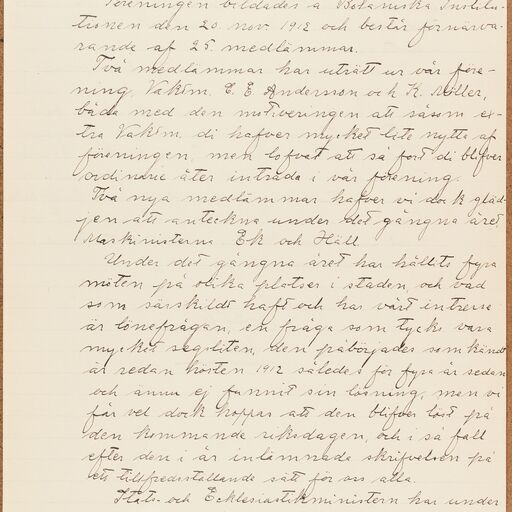 Föreningen bildades å Botaniska Institu-
tionen den 20. nov. 1912 och består förnärva-
rande af 25. medlämmar.
Två medlämmar har uträtt ur vår före-
ning, Vaktm. C. E Anderson och K. Möller,
båda med den motiveringen att såsom ex-
tra Vaktm. di hafver mycket lite nytta af
föreningen, men lofvat att så fort di blifver
ordinarie åter inträda i vår förening.
Två nya medlämmar hafver vi dock gläd-
jen att anteckna under det gångna året,
Maskinisterna Ek och Häll.
Under det gångna året har hållits fyra
möten på olika platser i staden, och vad
som särskildt haft och har vårt intresse
är lönefrågan, en fråga som tycks vara
mycket segsliten, den påbörjades som kändt
är redan hösten 1912 således för fyra år sedan
och ännu ej funnit sin lösning, men vi
får vel dock hoppas att den blifver löst på
den kommande riksdagen, och i så fall
efter den i år inlämnade skrifvelsen på
ett tillfredsställande sätt för oss alla.
Stats- och Ecklesiastikministern har under